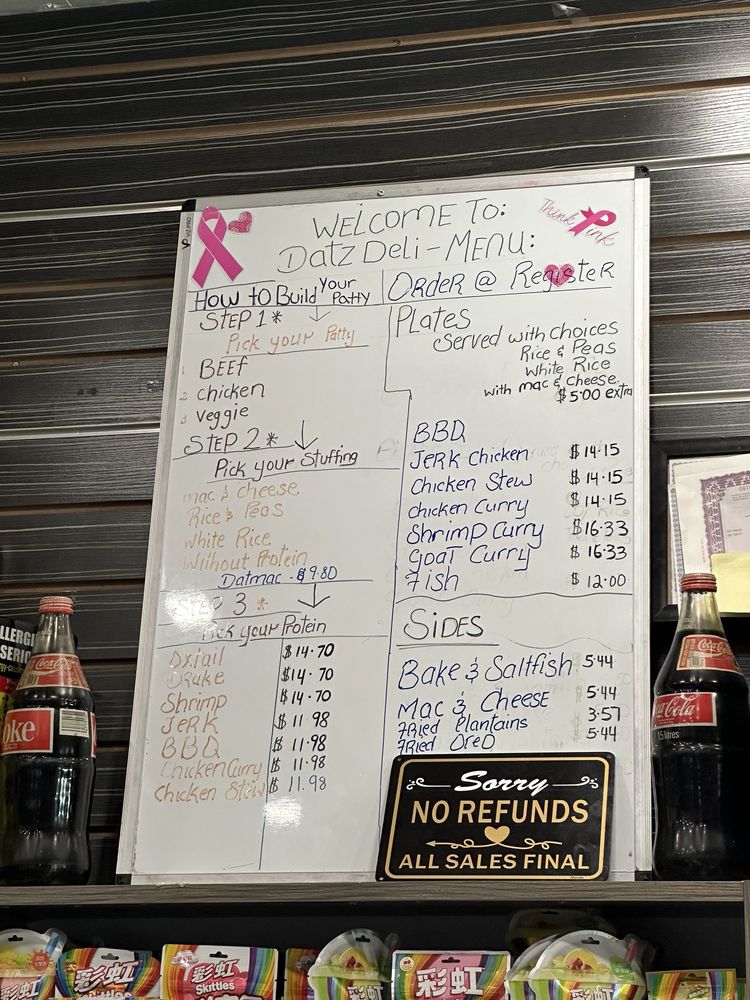 WELCOME TO:
Datz Deli - MENU:
Think Pink
How to Build Your Patty
STEP 1 *
Pick your Patty
1 BEEF
2 chicken
3 veggie
STEP 2 *
Pick your Stuffing
mac & cheese
Rice & Peas
white Rice
Without Protein
Datmac - $9.80
STEP 3 *
Pick your Protein
Oxtail $14.70
Drake $14.70
Shrimp $14.70
JERK $11.98
BBQ $11.98
Chicken Curry $11.98
Chicken Stew $11.98
ORDER @ Register
PLATES
Served with choices
Rice & Peas
White Rice
with mac & cheese
$5.00 extra
BBQ
JERK Chicken $14.15
Chicken Stew $14.15
chicken Curry $14.15
Shrimp Curry $16.33
Goat Curry $16.33
Fish $12.00
SIDES
Bake & Saltfish 5.44
Mac & Cheese 5.44
Fried Plantains 3.57
Fried Oreo 5.44
Sorry
NO REFUNDS
ALL SALES FINAL
Coca-Cola
oke
Coca-Cola
ca-Cola
1.5 litres
彩虹
Skittles
彩虹
Skittles
彩虹
Skittles